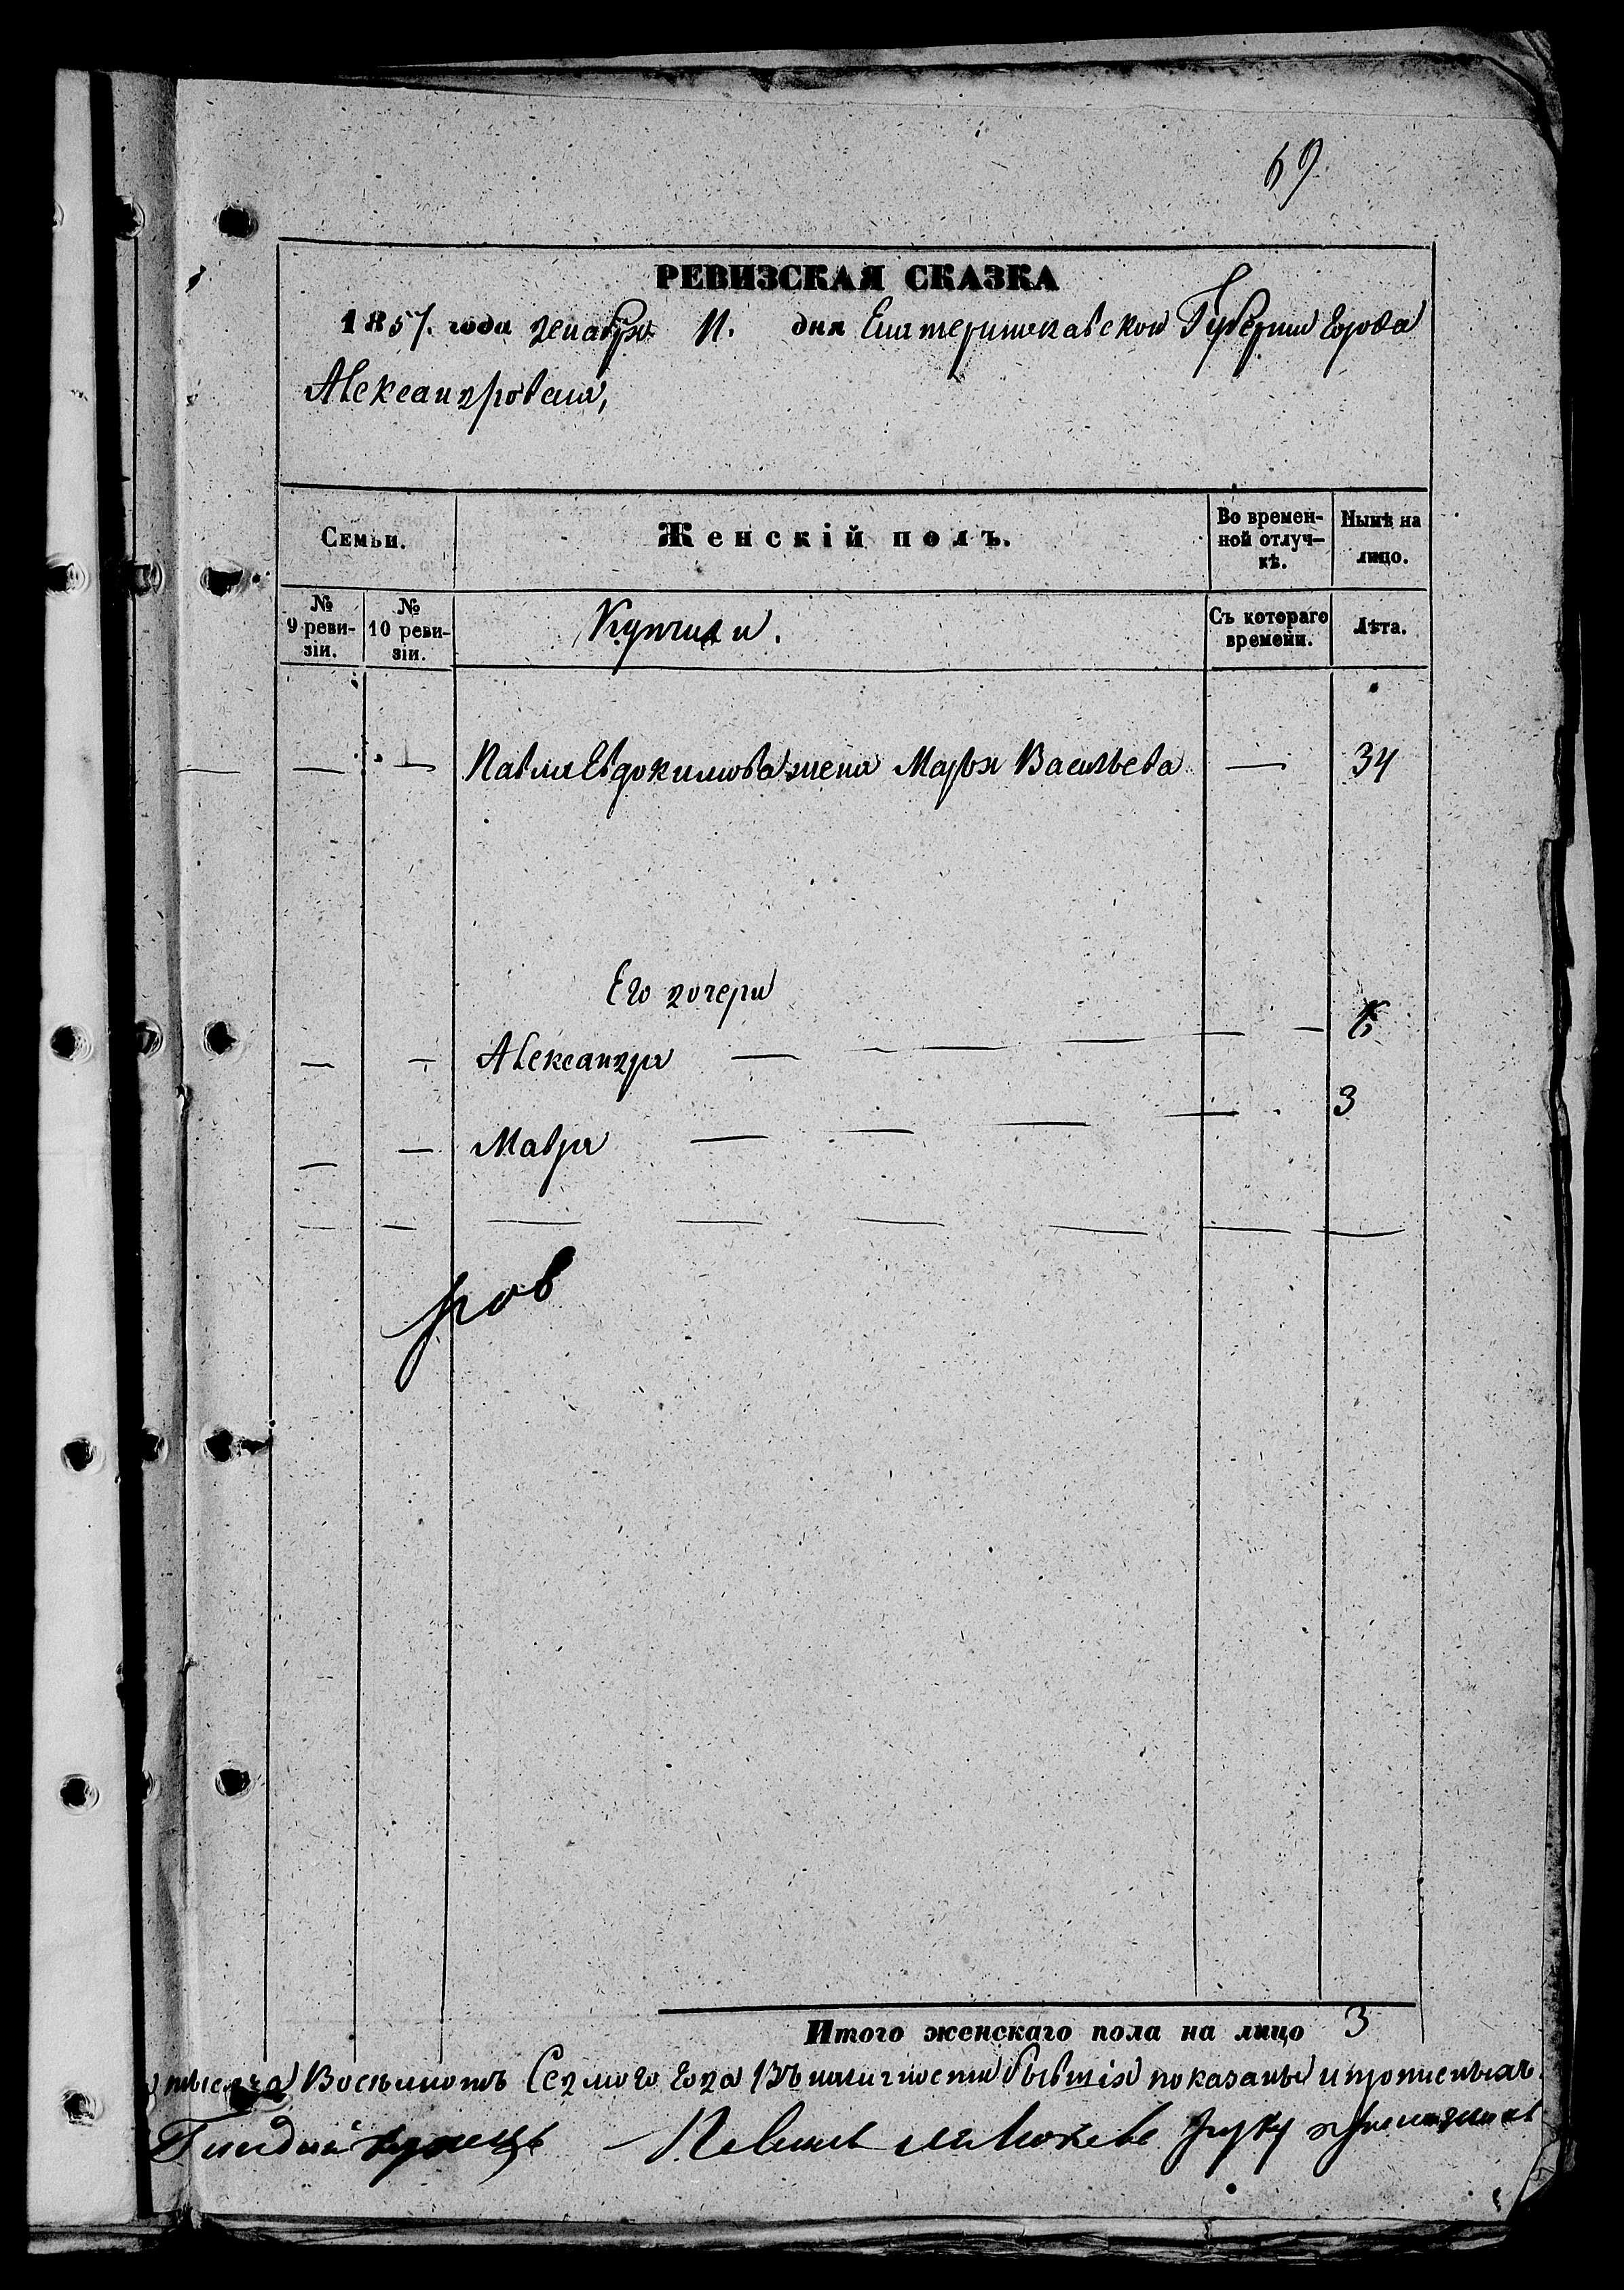 69
РЕВИЗСКАЯ СКАЗКА
1857. года декабря 11. дня Екатеринославской Губернии города
Александровска,
Семьи.
Женскій полъ.
Во времен-
ной отлуч-
кѣ.
Нынѣ на
лицо.
№
9 реви-
зіи.
№
10 реви-
зіи.
Купчихи.
Съ котораго
времени.
Лѣта.
— — Павла Евдокимова жена Марья Васильева — 34
Его дочери
— — Александра — — — — — — 6
— — Мавра — — — — 3
ров
Итого женскаго пола на лицо 3
тысяча Восемьсотъ Седмого года Въ наличности бывшія показаны и прописныхъ
Гильдіи купецъ Павелъ руку приложилъ